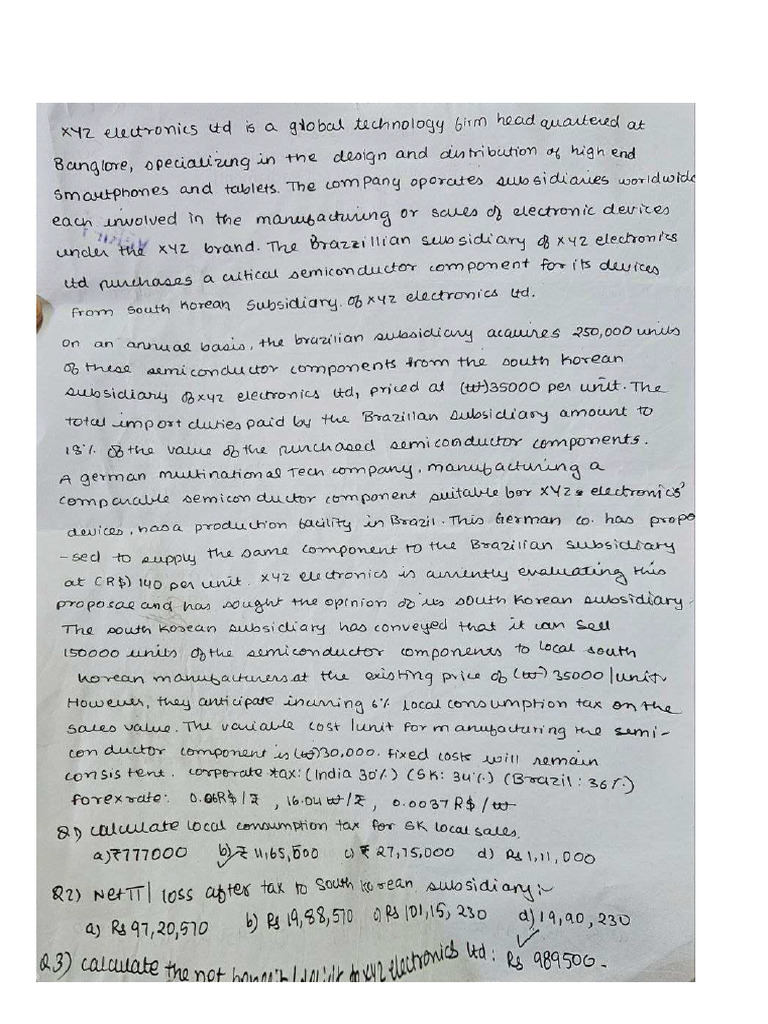 XYZ electronics Ltd is a global technology firm head quartered at
Banglore, specializing in the design and distribution of high end
smartphones and tablets. The company oporates subsidiaries worldwide
each involved in the manufacturing or sales of electronic devices
under the XYZ brand. The Brazzillian subsidiary of XYZ electronics
Ltd purchases a critical semiconductor component for its devices
from South Korean Subsidiary of XYZ electronics Ltd.
On an annual basis, the brazilian subsidiary acquires 250,000 units
of these semiconductor components from the south Korean
subsidiary of XYZ electronics Ltd, priced at (₩)35000 per unit. The
total import duties paid by the Brazilian subsidiary amount to
18% of the value of the purchased semiconductor components.
A german multinational Tech company, manufacturing a
comparable semiconductor component suitable for XYZ electronics'
devices, has a production facility in Brazil. This German co. has propo
-sed to supply the same component to the Brazilian subsidiary
at (R$) 140 per unit. XYZ electronics is currently evaluating this
proposal and has sought the opinion of its south Korean subsidiary.
The south Korean subsidiary has conveyed that it can sell
150000 units of the semiconductor components to local south
Korean manufacturers at the existing price of (₩) 35000/unit.
However, they anticipate incurring 6% local consumption tax on the
sales value. The variable cost/unit for manufacturing the semi-
conductor component is (₩)30,000. fixed costs will remain
consistent. corporate tax: (India 30%) (SK: 34%) (Brazil: 36%)
forex rate: 0.06R$/₹, 16.04 ₩/₹, 0.0037 R$/₩
Q1) calculate local consumption tax for SK local sales.
a) ₹777000 b) ₹ 11,65,500 c) ₹ 27,75,000 d) Rs 1,11,000
Q2) Net π/loss after tax to South Korean subsidiary:-
a) Rs 97,20,570 b) Rs 19,88,570 c) Rs 101,15,230 d) 19,90,230
Q.3) Calculate the net to XYZ electronics Ltd: Rs 989500.